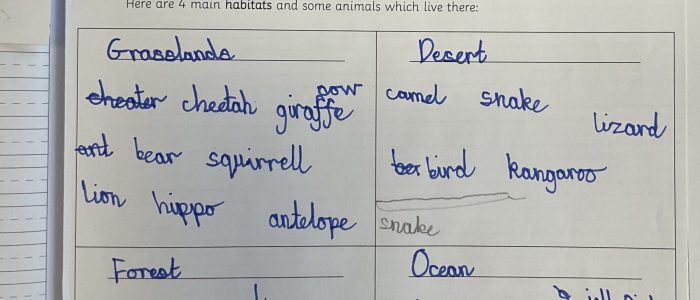 Here are 4 main habitats and some animals which live there:
Grasslands
cheater cheetah giraffe cow
ant bear squirrell
lion hippo antelope
Desert
camel snake
lizard
ber bird kangaroo
snake
Forest
Ocean